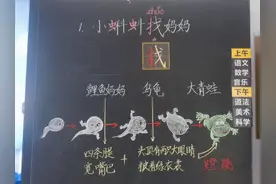 zhǎo
1. 小蝌蚪找妈妈
找
鲤鱼妈妈 乌龟 大青蛙
四条腿 + 大头有两大眼睛
宽嘴巴 披着绿衣裳
蹬 跳
上午
语文
数学
音乐
下午
道法
美术
科学